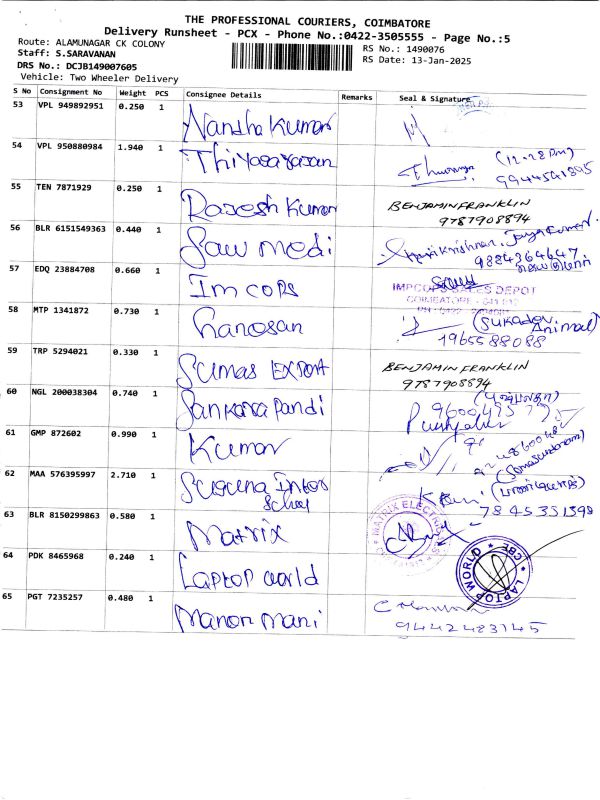 THE PROFESSIONAL COURIERS, COIMBATORE
Delivery Runsheet - PCX - Phone No.:0422-3505555 - Page No.:5
Route: ALAMUNAGAR CK COLONY
Staff: S.SARAVANAN
RS No.: 1490076
DRS No.: DCJB149007605
RS Date: 13-Jan-2025
Vehicle: Two Wheeler Delivery
S No Consignment No Weight PCS Consignee Details Remarks Seal & Signature
53 VPL 949892951 0.250 1 Nandha Kumar
54 VPL 950880984 1.940 1 Thiyagarajan (12-28 Pm)
9944591895
55 TEN 7871929 0.250 1 Rajesh Kumar BENJAMIN FRANKLIN
9787908894
56 BLR 6151549363 0.440 1 Saw medi
9884364647
57 EDQ 23884708 0.660 1 Imcops IMPCOPS SALES DEPOT
COIMBATORE
58 MTP 1341872 0.730 1 Ganosan (Sukadev Animal)
1965588088
59 TRP 5294021 0.330 1 Sumas Export BENJAMIN FRANKLIN
9787908894
60 NGL 200038304 0.740 1 Sankara Pandi
61 GMP 872602 0.990 1 Kumar
62 MAA 576395997 2.710 1 Suguna Inter
School
7845351398
63 BLR 8150299863 0.580 1 Matrix MATRIX
64 PDK 8465968 0.240 1 Laptop world LAPTOP WORLD * CBE *
65 PGT 7235257 0.480 1 Manon mani
9442483145